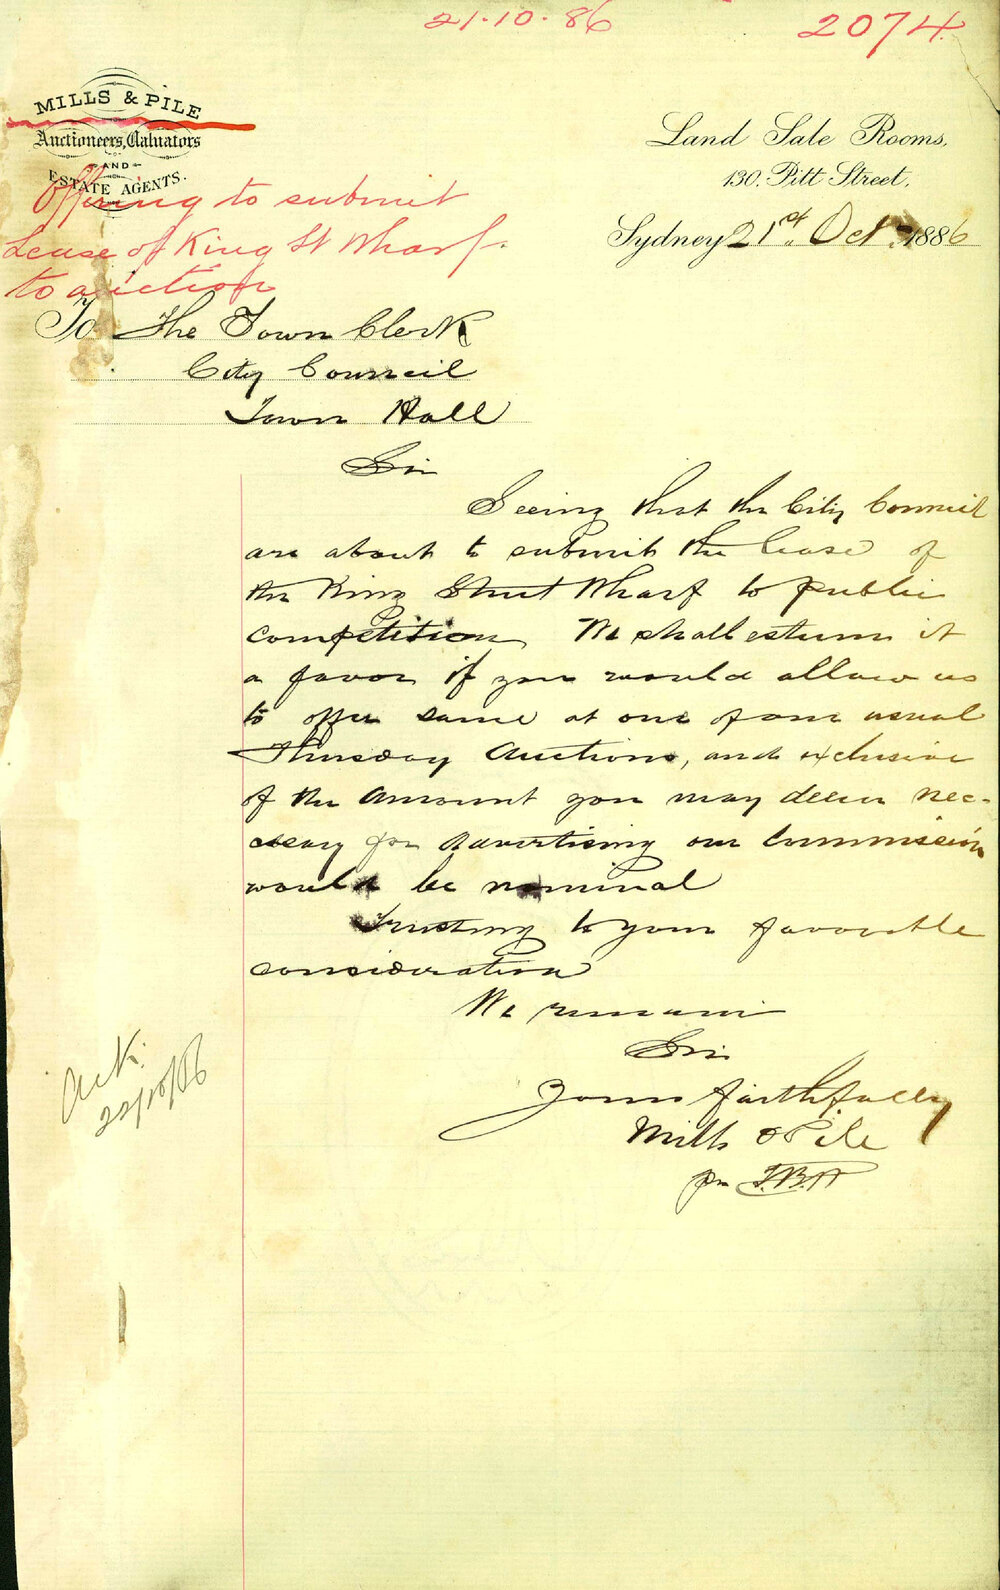 21.10.86
2074
MILLS & PILE
Auctioneers, Valuators
AND
ESTATE AGENTS.
Land Sale Rooms,
130, Pitt Street,
Sydney 21st Oct 1886
Offering to submit
Lease of King St Wharf
to auction
To The Town Clerk
City Council
Town Hall
Sir
Seeing that the City Council
are about to submit the lease of
the King Street Wharf to public
competition We shall esteem it
a favor if you would allow us
to offer same at one of our usual
Thursday Auctions, and exclusive
of the Amount you may deem nec-
essary for Advertising our Commission
would be nominal
Trusting to your favorable
consideration
We remain
Sir
Yours faithfully
Mills & Pile
Ack.
22/10/86